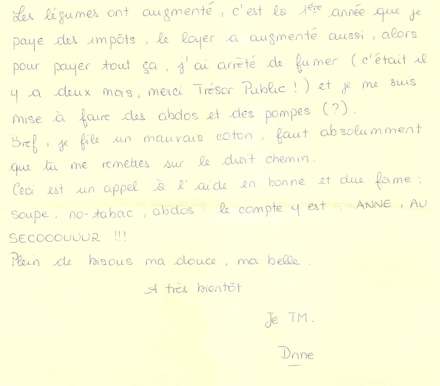 Les légumes ont augmenté, c'est la 1ère année que je
paye des impôts, le loyer a augmenté aussi, alors
pour payer tout ça, j'ai arrêté de fumer (c'était il
y a deux mois, merci Trésor Public !) et je me suis
mise à faire des abdos et des pompes (?).
Bref, je file un mauvais coton, faut absolumment
que tu me remettes sur le droit chemin.
Ceci est un appel à l'aide en bonne et due forme :
soupe, no-tabac, abdos : le compte y est. ANNE, AU
SECOOOUUUR !!!
Plein de bisous ma douce, ma belle.
A très bientôt
Je TM.